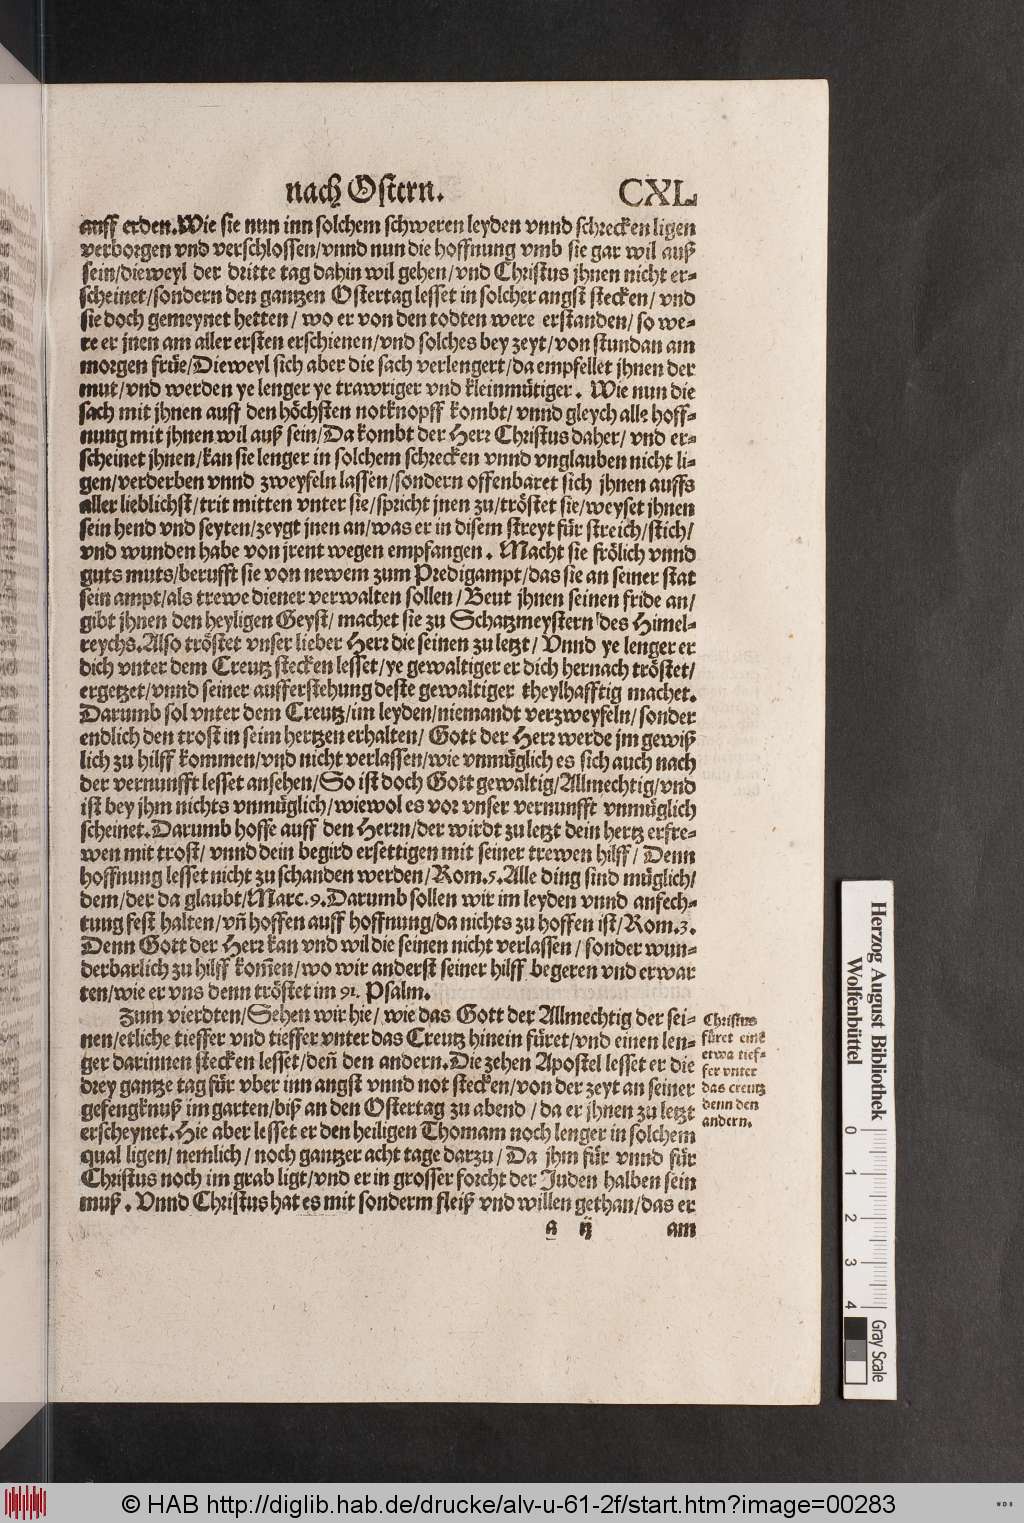 nach Ostern. CXL.
auff erden. Wie sie nun inn solchem schweren leyden vnnd schrecken ligen
verborgen vnd verschlossen/vnnd nun die hoffnung vmb sie gar wil auß
sein/dieweyl der dritte tag dahin wil gehen/vnd Christus jhnen nicht er-
scheinet/sondern den gantzen Ostertag lesset in solcher angst stecken/vnd
sie doch gemeynet hetten/wo er von den todten were erstanden/so we-
re er jnen am aller ersten erschienen/vnd solches bey zeyt/von stundan am
morgen früe/Dieweyl sich aber die sach verlengert/da empfellet jhnen der
mut/vnd werden ye lenger ye trawriger vnd kleinmütiger. Wie nun die
sach mit jhnen auff den höchsten notknopff kombt/vnnd gleych alle hoff-
nung mit jhnen wil auß sein/Da kombt der Herr Christus daher/vnd er-
scheinet jhnen/kan sie lenger in solchem schrecken vnnd vnglauben nicht li-
gen/verderben vnnd zweyfeln lassen/sondern offenbaret sich jhnen auffs
aller lieblichst/trit mitten vnter sie/spricht jnen zu/tröstet sie/weyset jhnen
sein hend vnd seyten/zeygt jnen an/was er in disem streyt für streich/stich/
vnd wunden habe von jrent wegen empfangen. Macht sie frölich vnnd
guts muts/berufft sie von newem zum Predigampt/das sie an seiner stat
sein ampt/als trewe diener verwalten sollen/Beut jhnen seinen fride an/
gibt jhnen den heyligen Geyst/machet sie zu Schatzmeystern des Himel-
reychs. Also tröstet vnser lieber Herr die seinen zu letzt/Vnnd ye lenger er
dich vnter dem Creutz stecken lesset/ye gewaltiger er dich hernach tröstet/
ergetzet/vnnd seiner aufferstehung deste gewaltiger theylhafftig machet.
Darumb sol vnter dem Creutz/im leyden/niemandt verzweyfeln/sonder
endlich den trost in seim hertzen erhalten/Gott der Herr werde jm gewiß
lich zu hilff kommen/vnd nicht verlassen/wie vnmüglich es sich auch nach
der vernunfft lesset ansehen/So ist doch Gott gewaltig/Allmechtig/vnd
ist bey jhm nichts vnmüglich/wiewol es vor vnser vernunfft vnmüglich
scheinet. Darumb hoffe auff den Herrn/der wirdt zu letzt dein hertz erfre-
wen mit trost/vnnd dein begird ersettigen mit seiner trewen hilff/Denn
hoffnung lesset nicht zu schanden werden/Rom.5. Alle ding sind müglich/
dem/der da glaubt/Marc.9. Darumb sollen wir im leyden vnnd anfech-
tung fest halten/vn̄ hoffen auff hoffnung/da nichts zu hoffen ist/Rom.3.
Denn Gott der Herr kan vnd wil die seinen nicht verlassen/sonder wun-
derbarlich zu hilff kom̄en/wo wir anderst seiner hilff begeren vnd erwar
ten/wie er vns denn tröstet im 91. Psalm.
Zum vierdten/Sehen wir hie/wie das Gott der Allmechtig der sei-
nen/etliche tieffer vnd tieffer vnter das Creutz hinein füret/vnd einen len-
ger darinnen stecken lesset/den̄ den andern. Die zehen Apostel lesset er die
drey gantze tag für vber inn angst vnnd not stecken/von der zeyt an seiner
gefengknuß im garten/biß an den Ostertag zu abend/da er jhnen zu letzt
erscheynet. Hie aber lesset er den heiligen Thomam noch lenger in solchem
qual ligen/nemlich/noch gantzer acht tage darzu/Da jhm für vnnd für
Christus noch im grab ligt/vnd er in grosser forcht der Juden halben sein
muß. Vnnd Christus hat es mit sonderm fleiß vnd willen gethan/das er
a ij am
Christus
füret eine
etwa tief-
fer vnter
das creutz
denn den
andern.
Herzog August Bibliothek
Wolfenbüttel
0 1 2 3 4
Gray Scale
© HAB http://diglib.hab.de/drucke/alv-u-61-2f/start.htm?image=00283